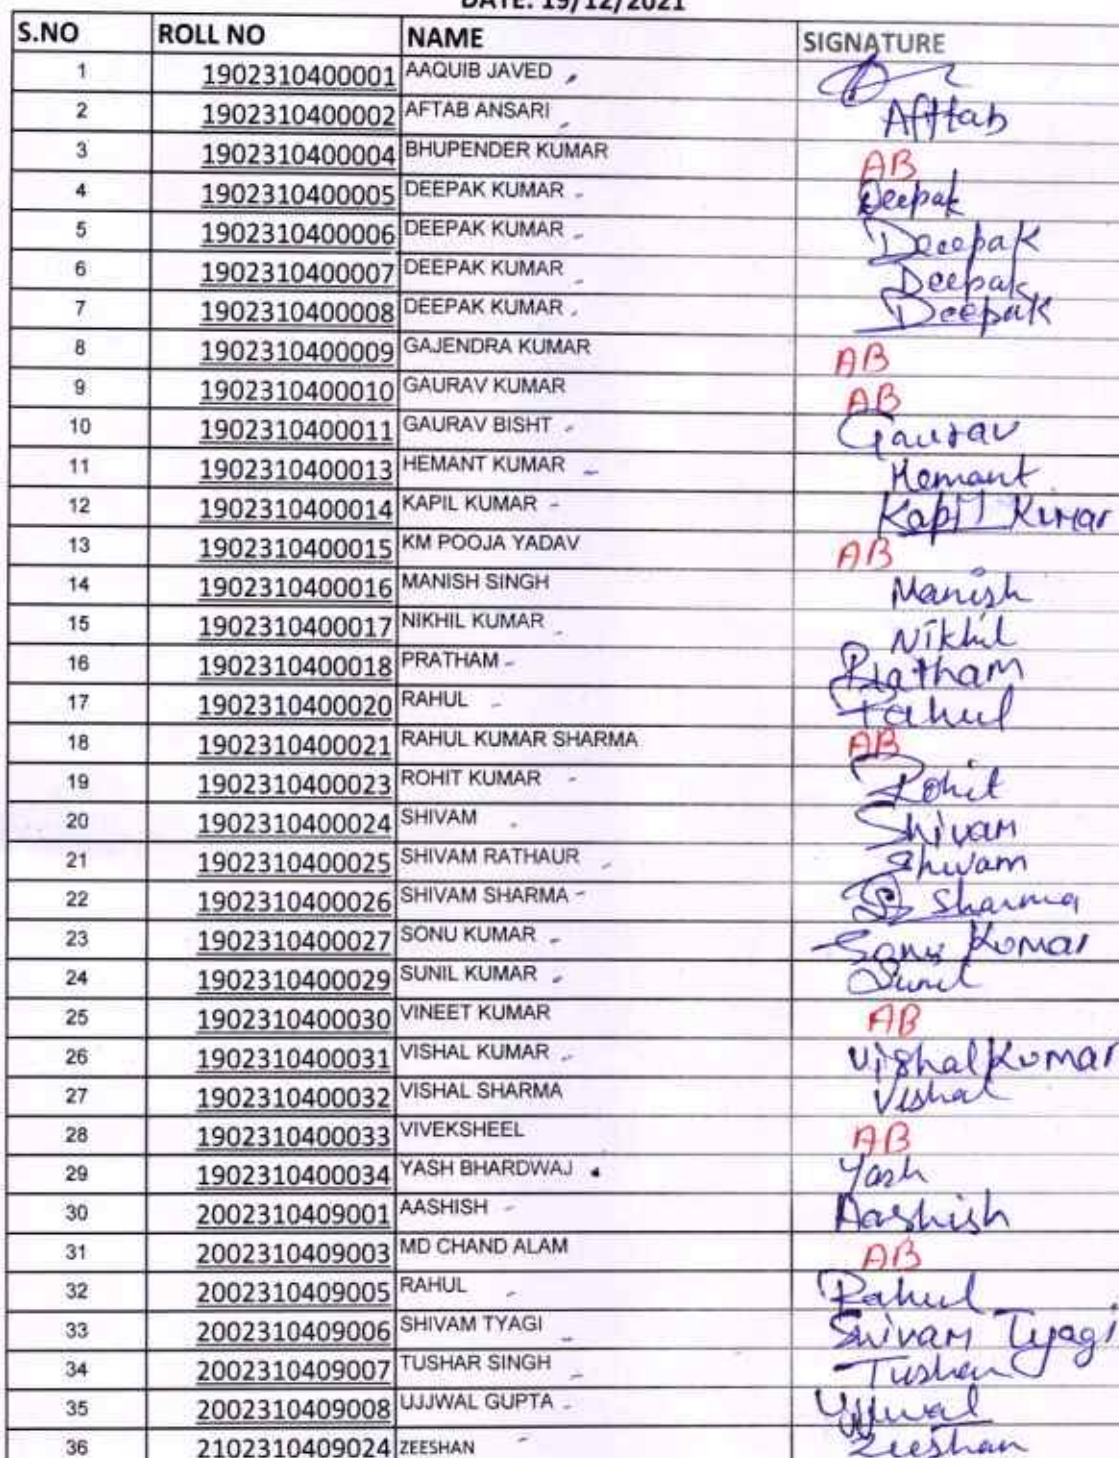 DATE: 19/12/2021
S.NO ROLL NO NAME SIGNATURE
1 1902310400001 AAQUIB JAVED
2 1902310400002 AFTAB ANSARI Afttab
3 1902310400004 BHUPENDER KUMAR AB
4 1902310400005 DEEPAK KUMAR Deepak
5 1902310400006 DEEPAK KUMAR Deepak
6 1902310400007 DEEPAK KUMAR Deepak
7 1902310400008 DEEPAK KUMAR Deepak
8 1902310400009 GAJENDRA KUMAR AB
9 1902310400010 GAURAV KUMAR AB
10 1902310400011 GAURAV BISHT Gaurav
11 1902310400013 HEMANT KUMAR Hemant
12 1902310400014 KAPIL KUMAR Kapil Kumar
13 1902310400015 KM POOJA YADAV AB
14 1902310400016 MANISH SINGH Manish
15 1902310400017 NIKHIL KUMAR Nikhil
16 1902310400018 PRATHAM Pratham
17 1902310400020 RAHUL Rahul
18 1902310400021 RAHUL KUMAR SHARMA AB
19 1902310400023 ROHIT KUMAR Rohit
20 1902310400024 SHIVAM Shivam
21 1902310400025 SHIVAM RATHAUR Shivam
22 1902310400026 SHIVAM SHARMA Sharma
23 1902310400027 SONU KUMAR Sonu Kumar
24 1902310400029 SUNIL KUMAR Sunil
25 1902310400030 VINEET KUMAR AB
26 1902310400031 VISHAL KUMAR Vishal Kumar
27 1902310400032 VISHAL SHARMA Vishal
28 1902310400033 VIVEKSHEEL AB
29 1902310400034 YASH BHARDWAJ Yash
30 2002310409001 AASHISH Aashish
31 2002310409003 MD CHAND ALAM AB
32 2002310409005 RAHUL Rahul
33 2002310409006 SHIVAM TYAGI Shivam Tyagi
34 2002310409007 TUSHAR SINGH Tushar
35 2002310409008 UJJWAL GUPTA Ujjwal
36 2102310409024 ZEESHAN Zeeshan